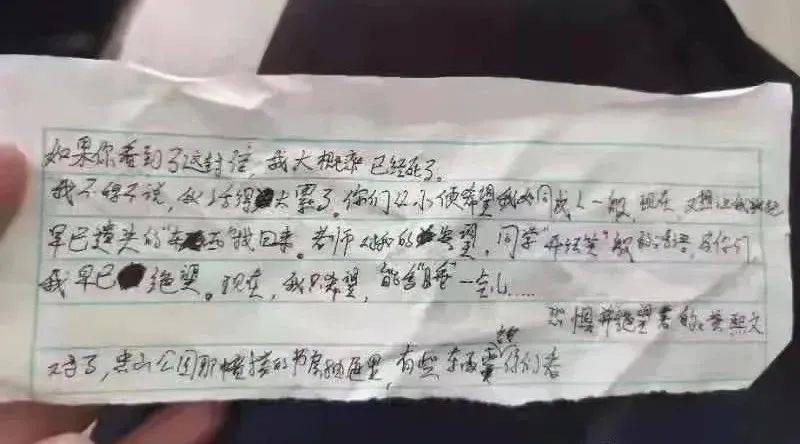 如果你看到了这封信，我大概率已经死了。
我不得不说，我活得太累了。你们从小便希望我如同成人一般，现在，又想让我找
早已遗失的“东西”找回来。老师的失望，同学“开玩笑”般的，你们，
我早已绝望。现在，我只希望，能多“睡”一会儿……
恐惧并绝望着的黄熙文
对了，公园那幢楼的书房抽屉里，有些东西需给你们看